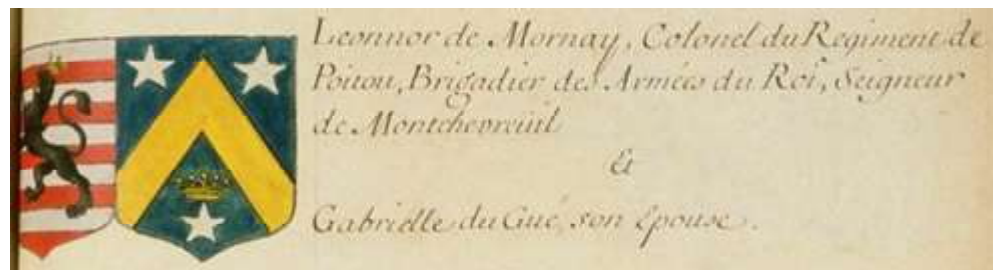 Leonnor de Mornay, Colonel du Regiment de
Poitou, Brigadier des Armées du Roi, Seigneur
de Montchevreüil
Et
Gabrielle du Gué, son Epouse.